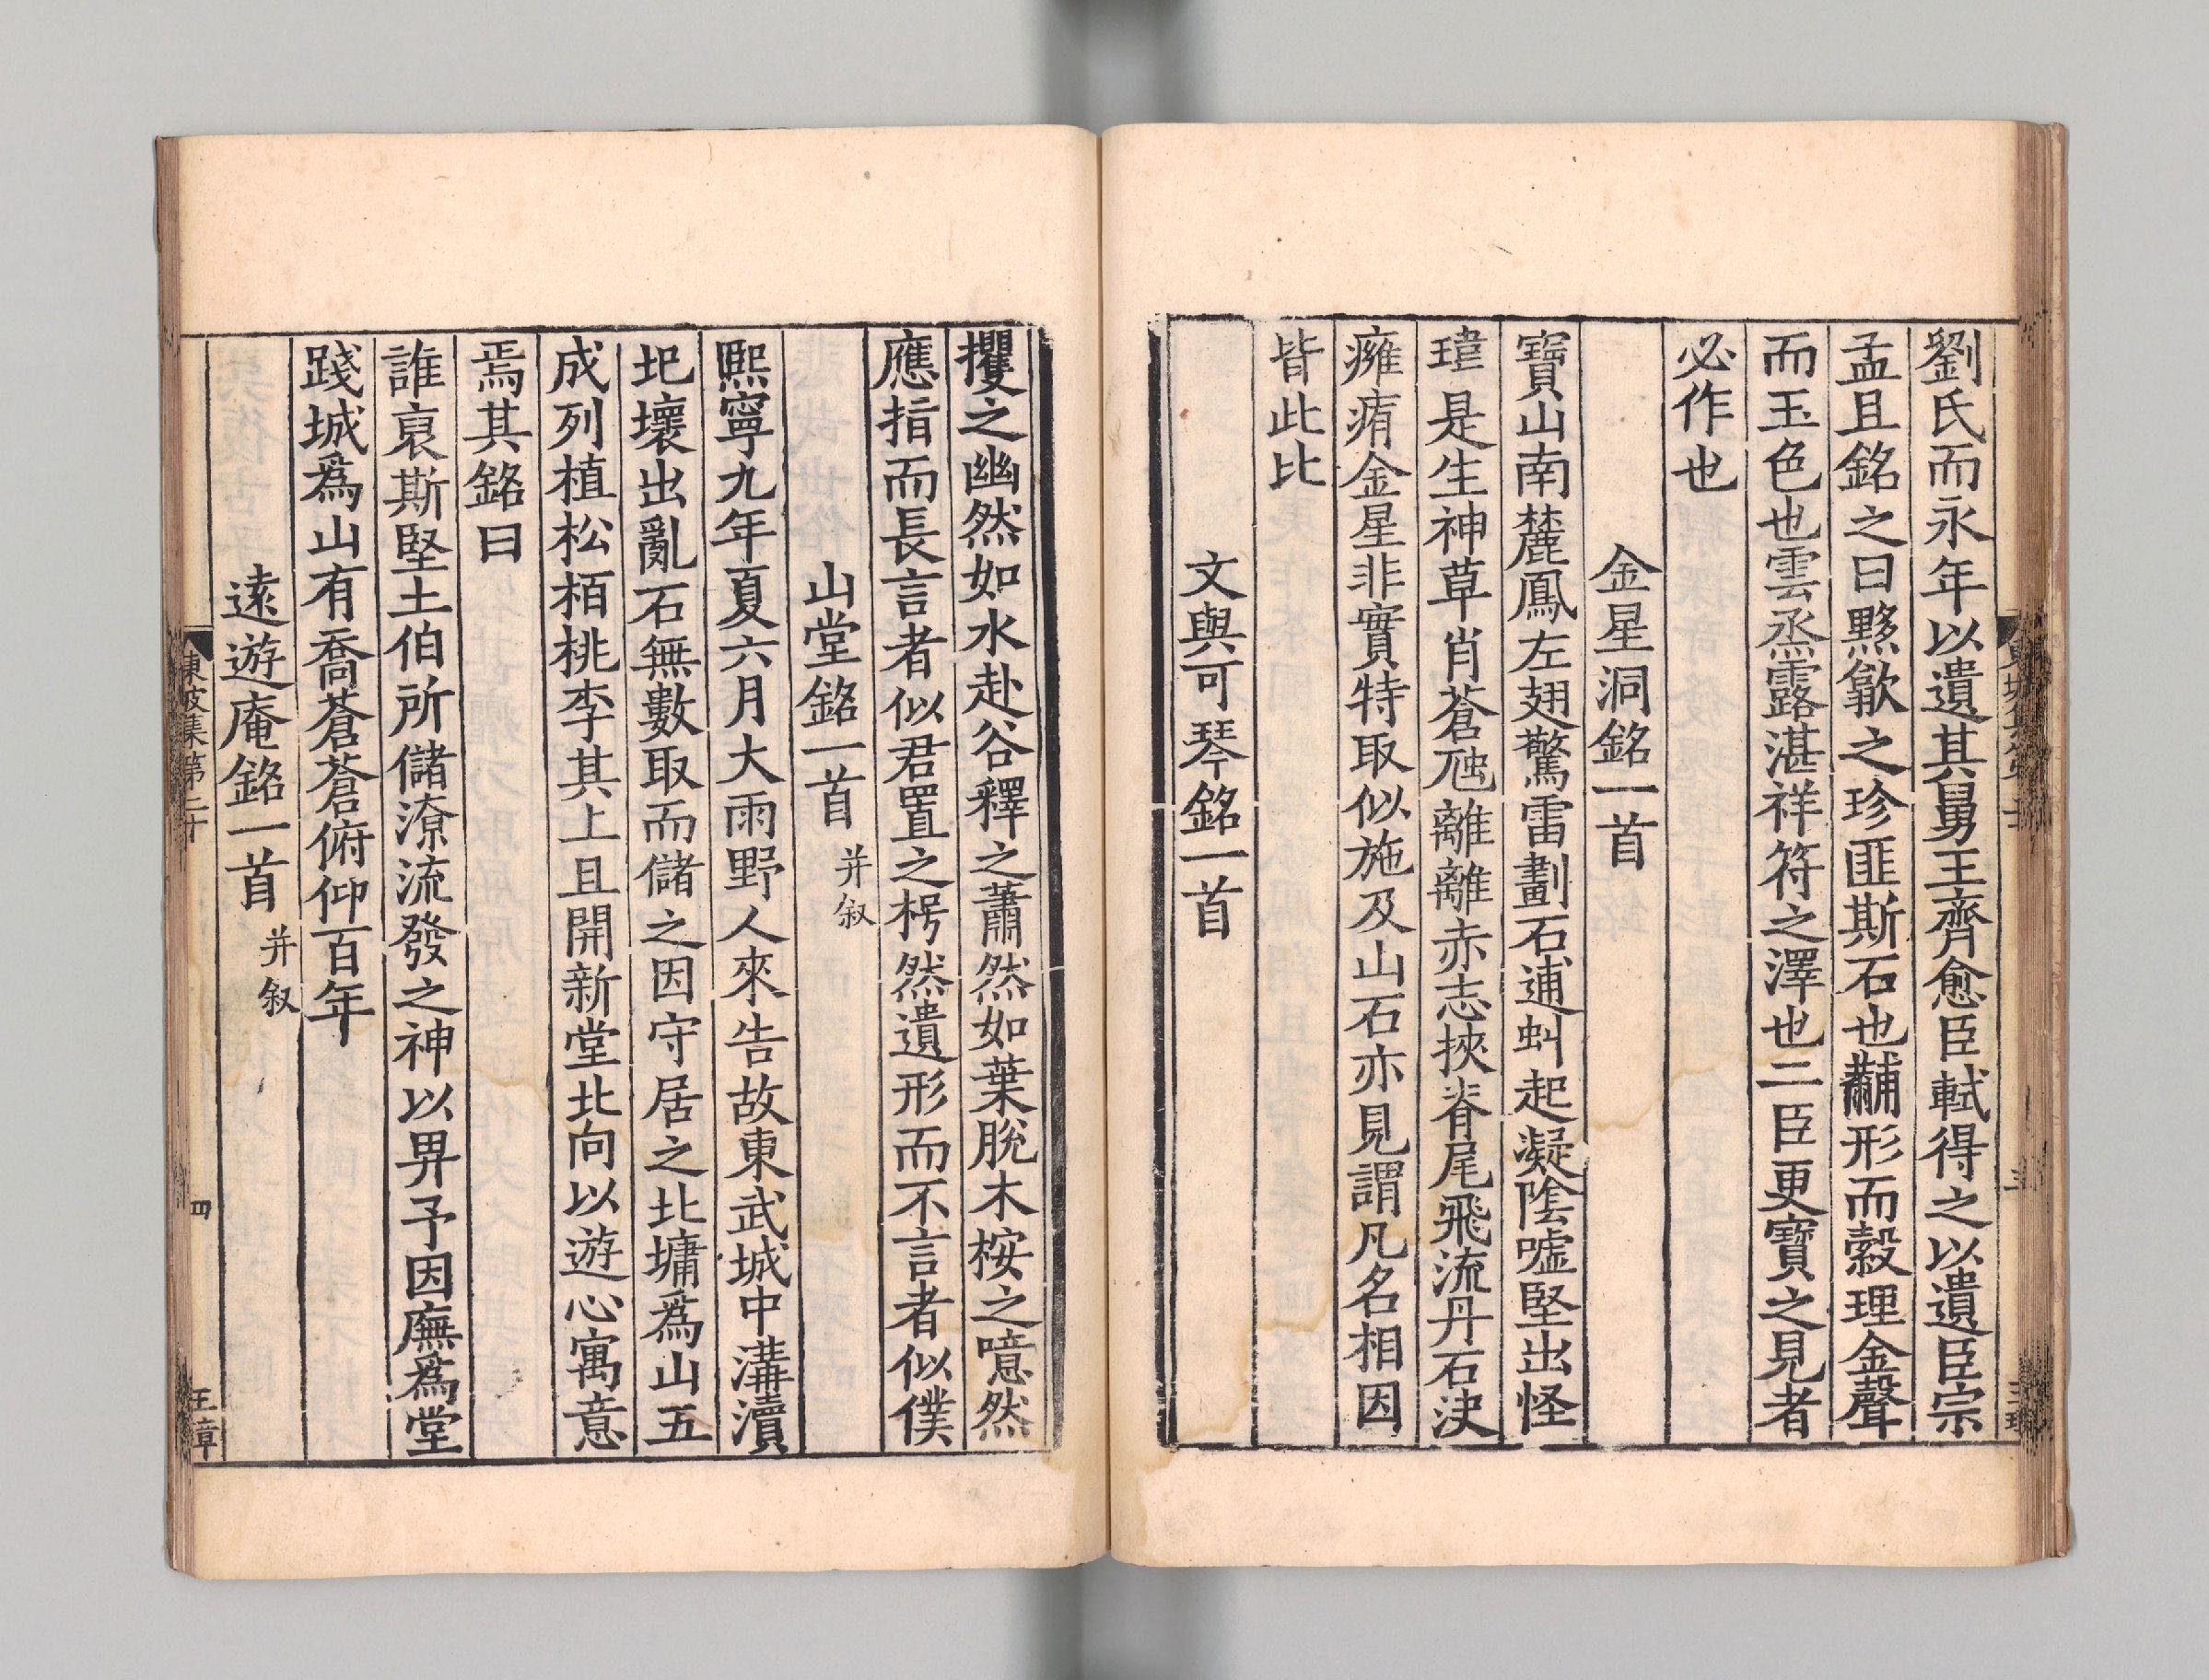 劉氏而永年以遺其舅王齊愈臣軾得之以遺臣宗
孟且銘之曰黟歙之珍匪斯石也黼形而縠理金聲
而玉色也雲烝露湛祥符之澤也二臣更寶之見者
必作也
金星洞銘一首
寶山南麓鳳左翅驚雷劃石逋虯起凝陰噓堅出怪
瑋是生神草肖蒼虺離離赤志挾脊尾飛流丹石决
癰痏金星非實特取似施及山石亦見謂凡名相因
皆此比
文與可琴銘一首
攫之幽然如水赴谷釋之蕭然如葉脫木桉之噫然
應指而長言者似君置之枵然遺形而不言者似僕
山堂銘一首 并叙
熙寧九年夏六月大雨野人來告故東武城中溝瀆
圮壞出亂石無數取而儲之因守居之北墉爲山五
成列植松栢桃李其上且開新堂北向以遊心寓意
焉其銘曰
誰裒斯堅土伯所儲潦流發之神以畀予因廡爲堂
踐城爲山有喬蒼蒼俯仰百年
遠遊庵銘一首 并叙
東坡集第二十
四
王章